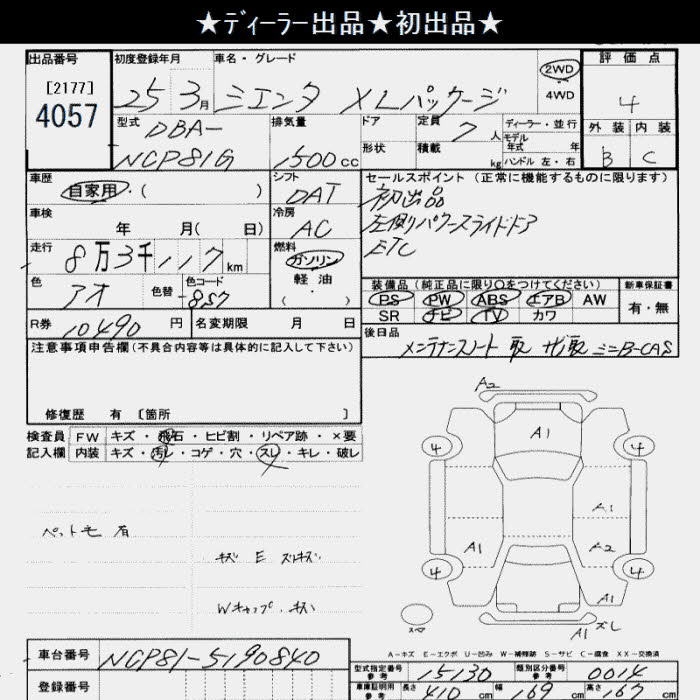 ★ディーラー出品★初出品★
出品番号 初度登録年月 車名・グレード 評価点
[2177]
4057
25 3月 シエンタ XLパッケージ 2WD 4WD 4
型式 DBA- 排気量 ドア 定員 7人 ディーラー・並行 外装 内装
モデル年式 年
NCP81G 1500cc 形状 積載 kg ハンドル 左・右 B C
車歴 シフト セールスポイント(正常に機能するものに限ります)
自家用・( ) DAT 初出品
車検 冷房 左側パワースライドドア
年 月( 日) AC ETC
走行 燃料
8万3千117km ガソリン
色 色替 色コード 軽油 装備品(純正品に限り○をつけてください) 新車保証書
アオ 8S7 ・( ) PS PW ABS エアB AW 有・無
SR ナビ TV カワ
R券 10490円 名変期限 月 日 後日品
注意事項申告欄(不具合内容等は具体的に記入して下さい) メンテナンスノート 取 ナビ取 ミニB-CAS
修復歴 有 〔箇所 〕
検査員 FW キズ・飛石・ヒビ割・リペア跡・×要
記入欄 内装 キズ・汚レ・コゲ・穴・スレ・キレ・破レ
A2
A1
4 4
A1
A1 A2
4 4
A1
スペア
A1 ズレ
ペット毛 有
キズ E スレキズ
Wキャップ・キズ
A-キズ E-エクボ U-凹み W-補修跡 S-サビ C-腐食 XX-交換済
車台番号 NCP81-5190840
型式指定番号 参考 15130 類別区分番号 参考 0014
登録番号 車庫証明用 参考 長さ 410cm 幅 169cm 高さ 167cm